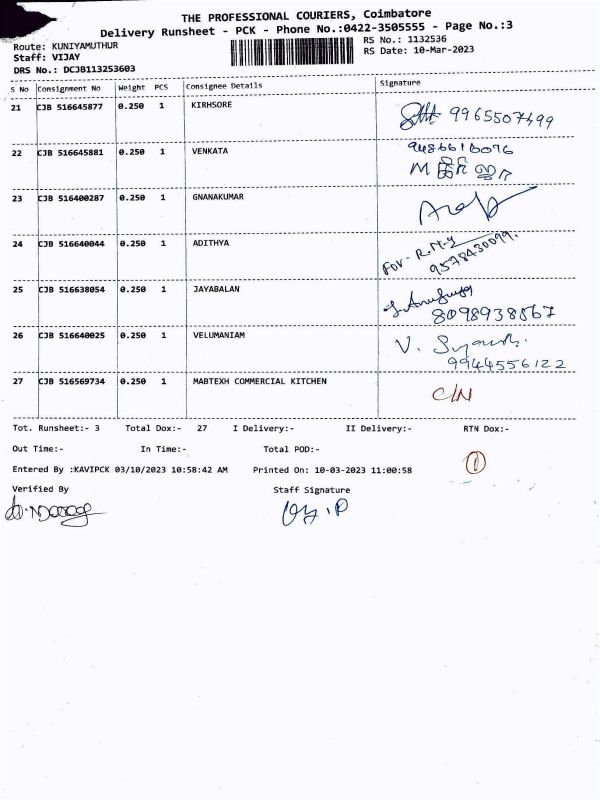 THE PROFESSIONAL COURIERS, Coimbatore
Delivery Runsheet - PCK - Phone No.:0422-3505555 - Page No.:3
Route: KUNIYAMUTHUR
RS No.: 1132536
Staff: VIJAY
RS Date: 10-Mar-2023
DRS No.: DCJB113253603
S No Consignment No Weight PCS Consignee Details Signature
21 CJB 516645877 0.250 1 KIRHSORE 9965507499
22 CJB 516645881 0.250 1 VENKATA 9486616096
23 CJB 516400287 0.250 1 GNANAKUMAR
24 CJB 516640044 0.250 1 ADITHYA For- R.M.y
9578430099.
25 CJB 516638054 0.250 1 JAYABALAN
8098938867
26 CJB 516640025 0.250 1 VELUMANIAM V.
9944556122
27 CJB 516569734 0.250 1 MABTEXH COMMERCIAL KITCHEN C/N
Tot. Runsheet:- 3 Total Dox:- 27 I Delivery:- II Delivery:- RTN Dox:-
Out Time:- In Time:- Total POD:-
1
Entered By :KAVIPCK 03/10/2023 10:58:42 AM Printed On: 10-03-2023 11:00:58
Verified By Staff Signature